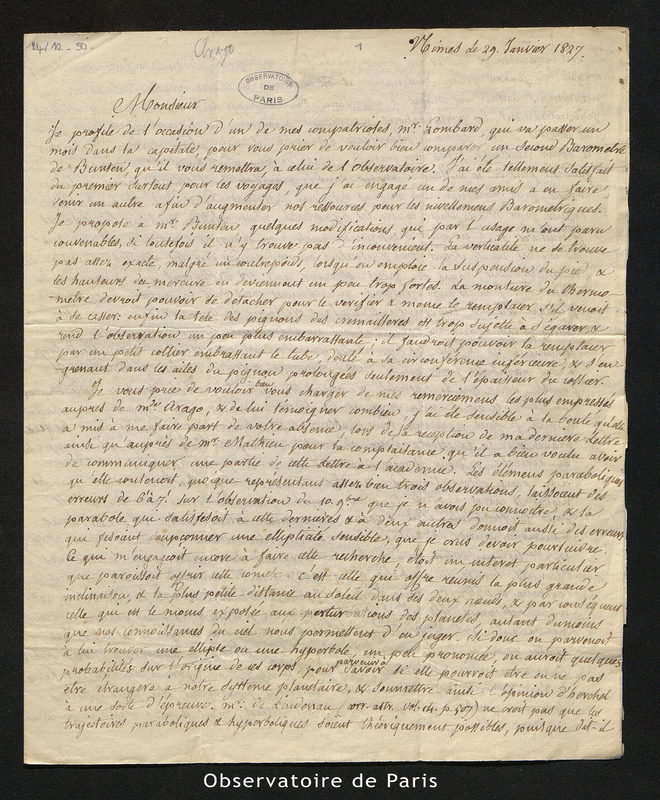 Arago
1
Nimes le 29. Janvier 1827.
OBSERVATOIRE
DE
PARIS
Monsieur
Je profite de l'occasion d'un de mes compatriotes, mr. Lombard, qui va passer un
mois dans la capitale, pour vous prier de vouloir bien comparer un second Barometre
de Bunten, qu'il vous remettra, à celui de l'Observatoire. J'ai été tellement satisfait
du premier surtout pour les voyages, que j'ai engagé un de mes amis a en faire
venir un autre afin d'augmenter nos ressources pour les nivellemens Barometriques.
Je propose à mr. Bunten quelques modifications, qui par l'usage m'ont paru
convenables, si toutefois il n'y trouve pas d'inconvenient. La verticalité ne se trouve
pas assez exacte, malgré un contrepoids, lorsqu'on emploie la suspension du pié, &
les hauteurs du mercure en deviennent un peu trop fortes. La monture du thermo-
metre devroit pouvoir se détacher pour le verifier & meme le remplacer s'il venoit
à se casser: enfin la tete des pignons des cremailleres est trop sujette à s'égarer &
rend l'observation un peu plus embarrassante; il faudroit pouvoir la remplacer
par un petit collier embrassant le tube, denté à sa circonférence inférieure, & s'en-
grenant dans les ailes du pignon prolongées seulement de l'épaisseur du collier.
Je vous prie de vouloir bien vous charger de mes remerciemens les plus empressés
aupres de mr. Arago, & de lui témoigner combien j'ai été sensible à la bonté qu'il
a mis à me faire part de votre absence, lors de la reception de ma derniere lettre
ainsi qu'auprès de mr. Mathieu pour la complaisance qu'il a bien voulu avoir
de communiquer une partie de cette lettre à l'académie. Les élémens paraboliques
qu'elle contenoit, quoique représentant assez bien trois observations, laissoient des
erreurs de 6' à 7'. sur l'observation du 10. 9bre que je n'avois pu connoitre, & la
parabole qui satisfesoit à cette derniere & à deux autres donnoit aussi des erreurs
qui fesoient soupçonner une ellipticité sensible, que je crus devoir poursuivre.
Ce qui m'engageoit encore à faire cette recherche, étoit un interet particulier
que paroissoit offrir cette comete: c'est celle qui offre reunis la plus grande
inclinaison, & la plus petite distance au soleil dans ses deux noeuds, & par consequent
celle qui est le moins exposée aux perturbations des planetes, autant du moins
que nos connoissances du ciel nous permettent d'en juger. Si donc on parvenoit
à lui trouver une ellipse ou une hyperbole, un peu prononcée, on auroit quelques
probabilités sur l'origine de ces corps, pour parvenir à savoir si elle pourroit être ou ne pas
etre étrangere à notre systeme planetaire, & soumettre ainsi l'opinion d'herschel
à une sorte d'épreuve. mr. de Lindenau (corr. astr. vol. p. 507) ne croit pas que les
trajectoires paraboliques & hyperboliques soient théoriquement possibles, puisque dit-il
Observatoire de Paris